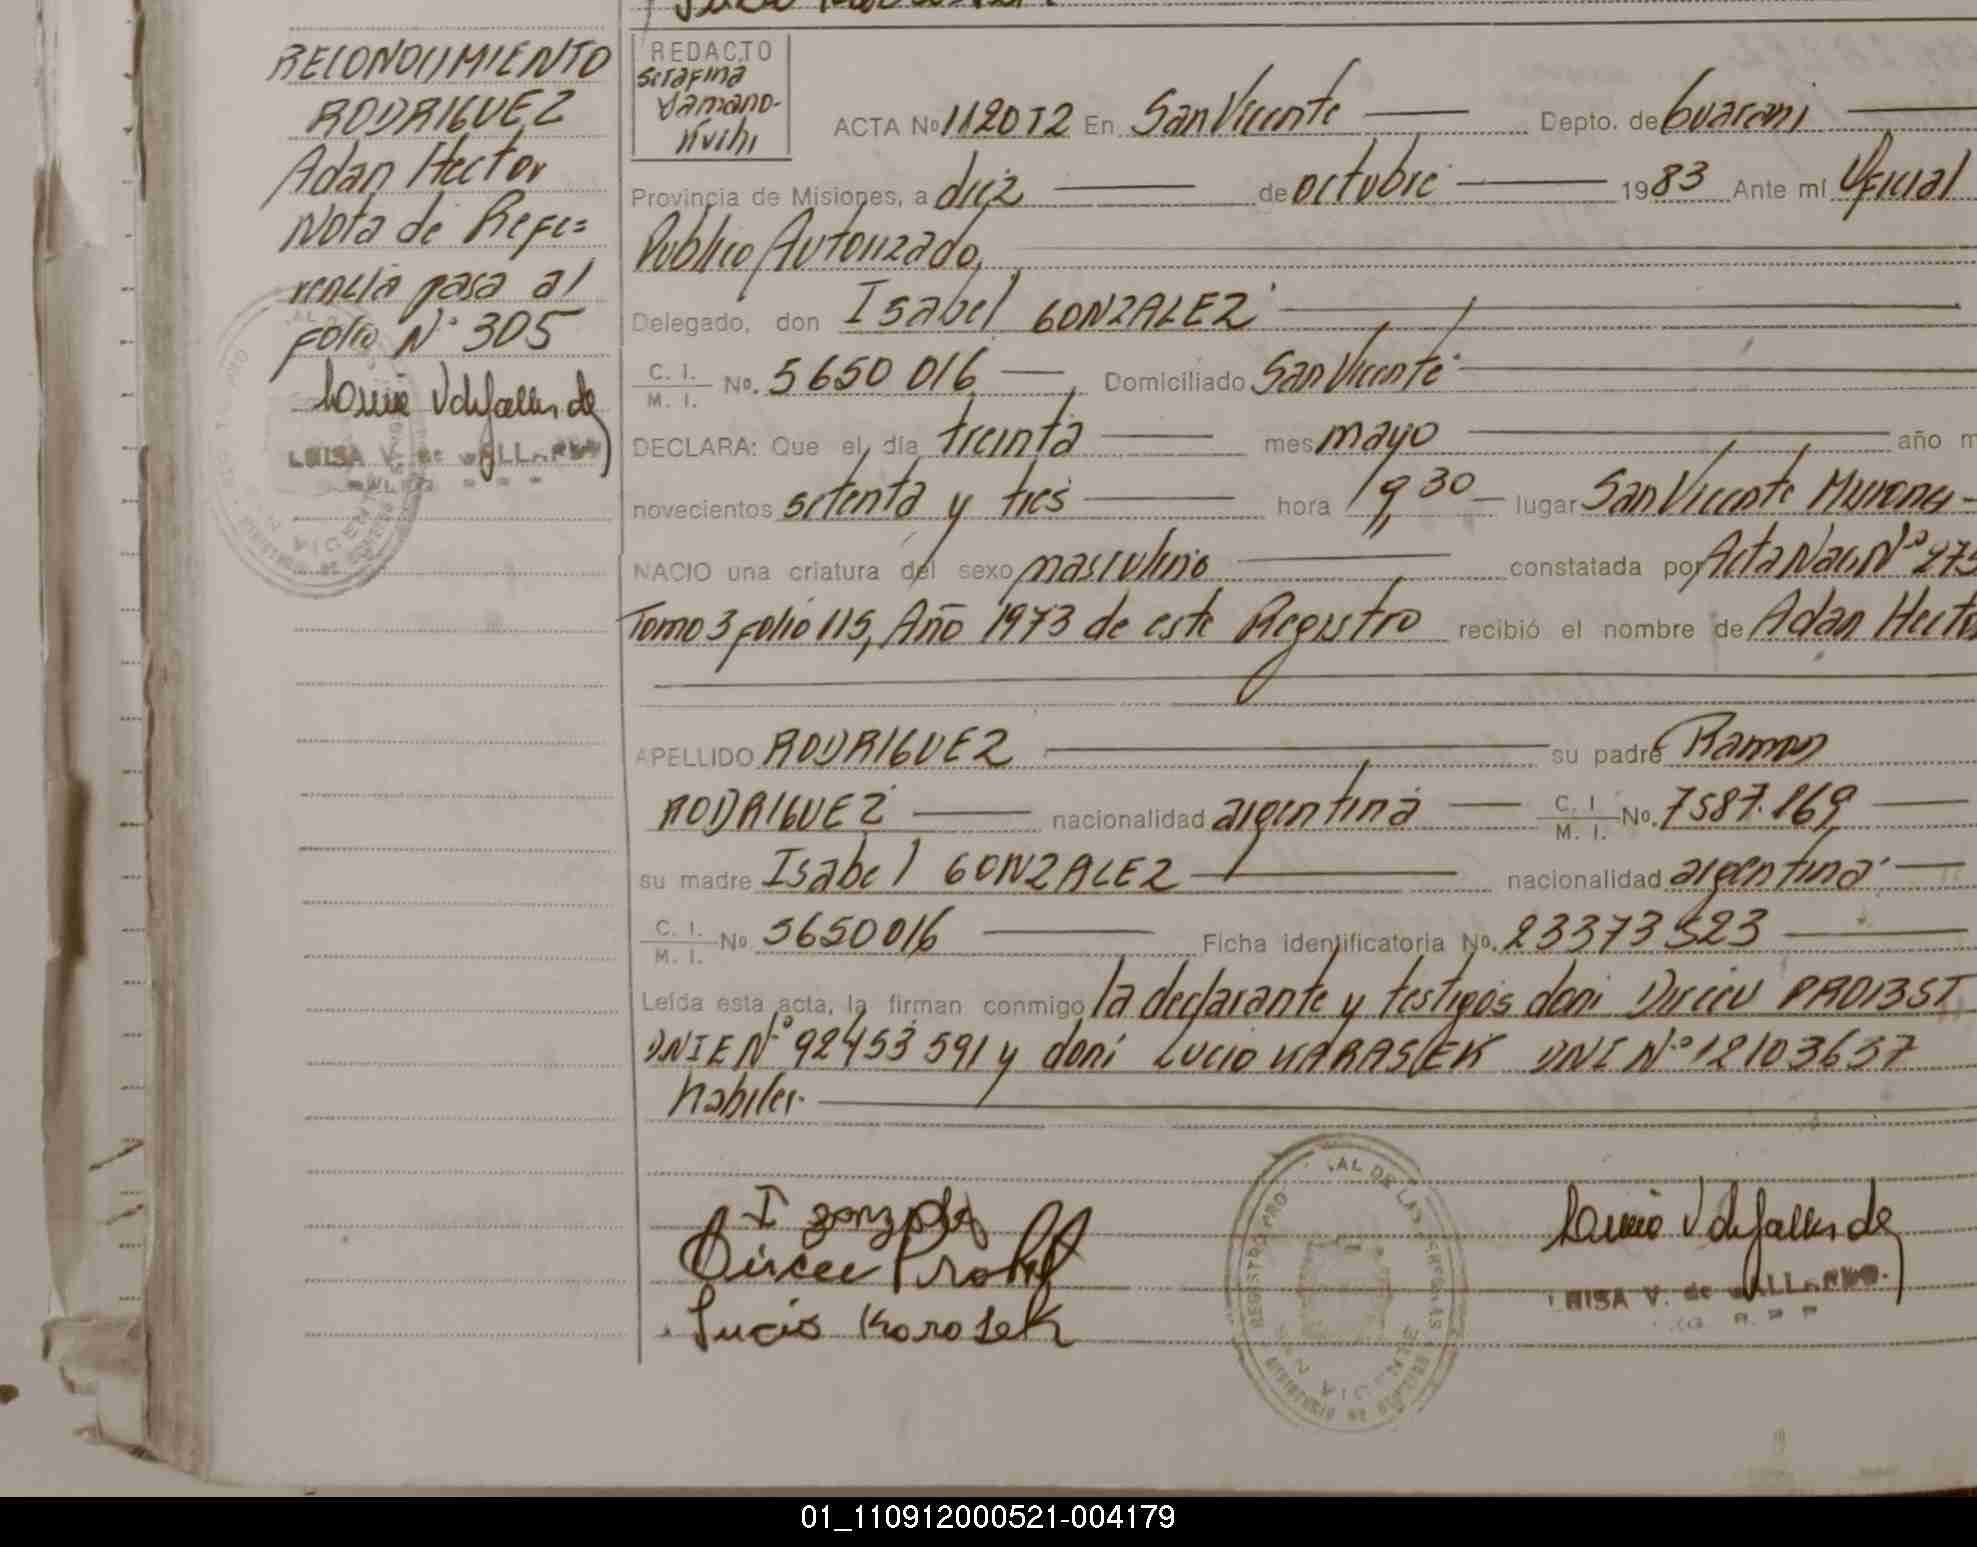 RECONOCIMIENTO
RODRIGUEZ
Adan Hector
Nota de Refe=
rencia pasa al
Folio N° 305
LUISA V. de
REDACTO
Serafina
ACTA No 112 0 T2 En San Vicente Depto. de Guarani
Provincia de Misiones, a diez de octubre 1983 Ante mí Oficial
Publico Autorizado,
Delegado, don Isabel GONZALEZ
C. I. M. I. No. 5650 016 Domiciliado San Vicente
DECLARA: Que el día treinta mes mayo año m
novecientos setenta y tres hora 19,30 lugar San Vicente Misiones
NACIO una criatura del sexo masculino constatada por Acta Nac. N° 275
Tomo 3 Folio 115, Año 1973 de este Registro recibió el nombre de Adan Hector
APELLIDO RODRIGUEZ su padre Ramon
RODRIGUEZ nacionalidad argentina C. I. M. I. No. 7587.169
su madre Isabel GONZALEZ nacionalidad argentina
C. I. M. I. No 5650016 Ficha identificatoria No. 23373523
Leída esta acta, la firman conmigo la declarante y testigos don: Dirceu PROBST
DNIE N° 92453591 y don: Lucio KARASEK DNI N° 12103637
habiles.
I gonzalez
Dirceu Probst
Lucio Karasek
LUISA V. de
REGISTRO PRO AL DE LAS PERSONAS
SAN VICENTE
01_110912000521-004179